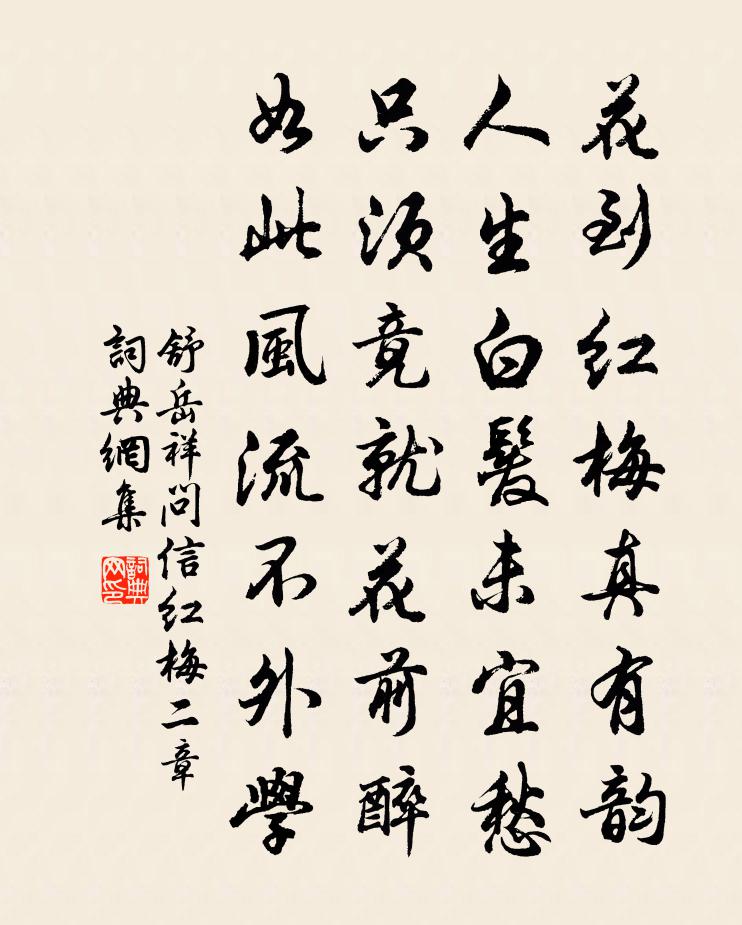 花到红梅真有韵
人生白髮未宜愁
只须竟就花前醉
如此風流不外學
舒岳祥问信红梅二章
詞典網集
詞典网印